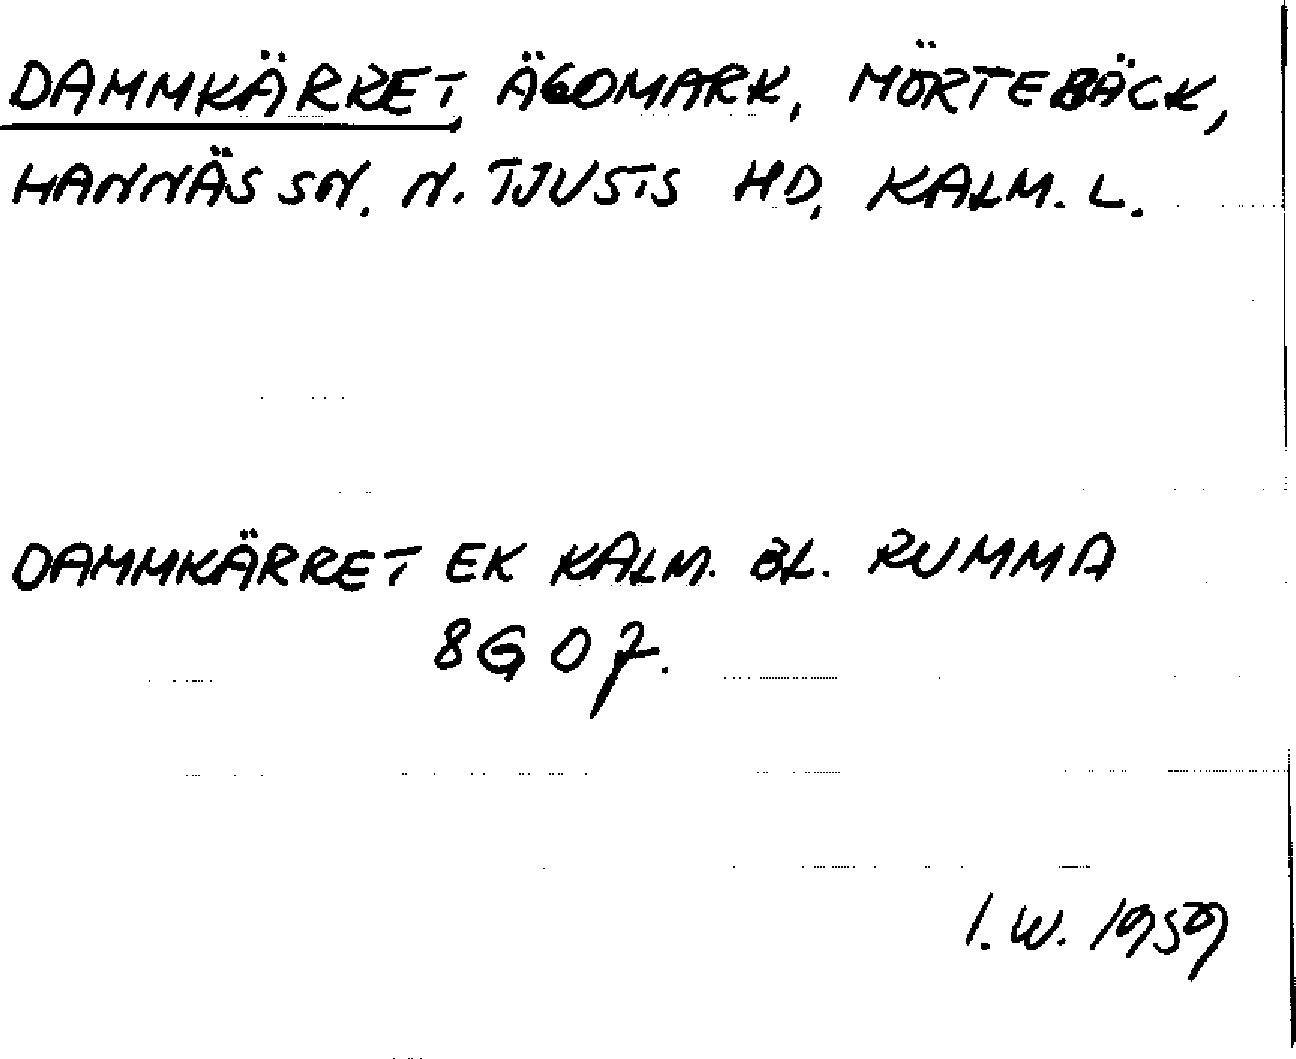 DAMMKÄRRET, ÄGOMARK, MÖRTEBÄCK,
HANNÄS SN. N. TJUSTS HD, KALM. L.
DAMMKÄRRET EK KALM. BL. RUMMA
8G 07.
I.W. 1959